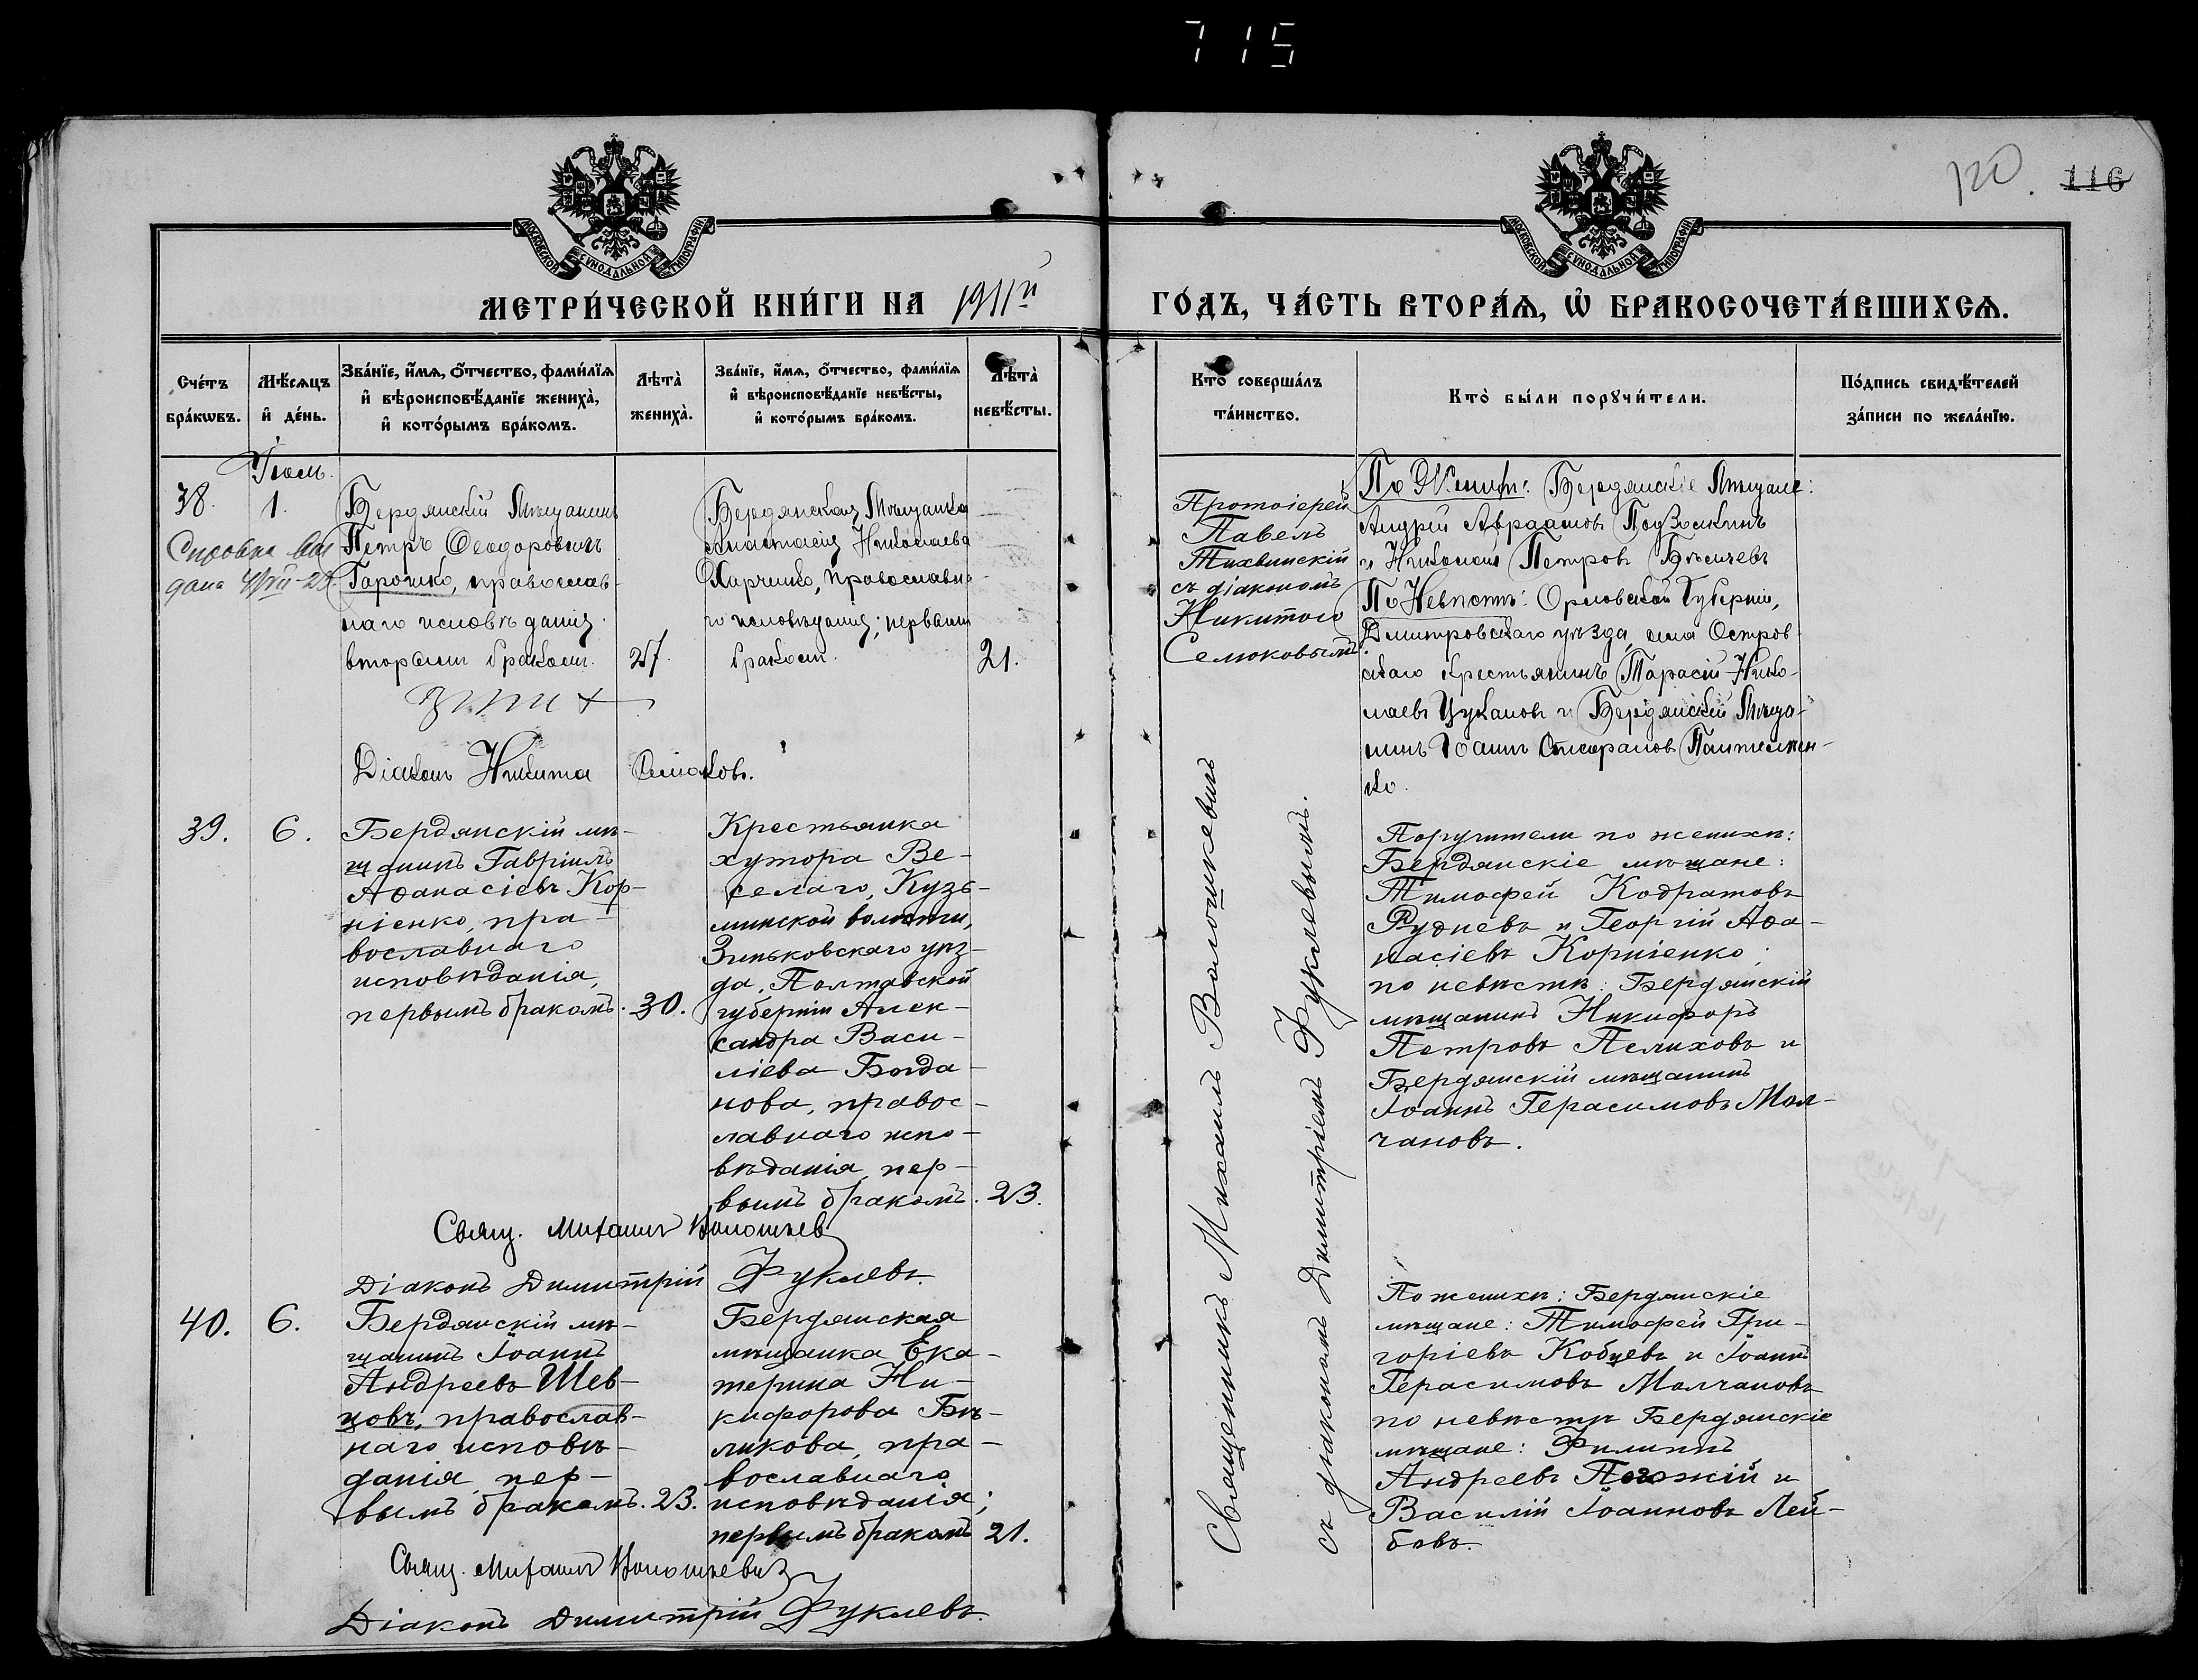 715
120.
116
МОСКОВСКОЙ СѴНОДАЛЬНОЙ ТИПОГРАФІИ
МОСКОВСКОЙ СѴНОДАЛЬНОЙ ТИПОГРАФІИ
МЕТРИ́ЧЕСКОЙ КНИ́ГИ НА 1911й
ГО́ДЪ, ЧА́СТЬ ВТОРА́Я, Ѡ҆ БРАКОСОЧЕТА́ВШИХСЯ.
Сче́тъ
бра́кѡвъ.
Мѣ́сяцъ
и҆ де́нь.
Зва́нїе, и҆́мя, о҆́тчество, фами́лїя
и҆ вѣроисповѣ́данїе жениха̀,
и҆ кото́рымъ бра́комъ.
Лѣта̀
жениха̀.
Зва́нїе, и҆́мя, о҆́тчество, фами́лїя
и҆ вѣроисповѣ́данїе невѣ́сты,
и҆ кото́рымъ бра́комъ.
Лѣта̀
невѣ́сты.
Кто̀ соверша́лъ
та́инство.
Кто̀ бы́ли порꙋчи́тели.
По́дпись свидѣ́телей
за́писи по жела́нїю.
38.
1.
Справка вы
дана
Бердянскій Мѣщанинъ
Петръ Ѳеодоровичъ
Горошко, православ-
наго исповѣданія
вторымъ бракомъ.
27.
Бердянская Мѣщанка
Анастасія Николаева
Харченко, православна-
го исповѣданія; первымъ
бракомъ.
21.
Діаконъ Никита Семюковъ.
Протоіерей
Павелъ
Тихвинскій
съ діакономъ
Никитою
Семюковымъ.
По Женихѣ: Бердянскіе Мѣщане:
Андрей Авраамовъ
и Николай Петровъ
По Невѣстѣ: Орловской Губерніи,
Дмитровскаго уѣзда, села Остров-
скаго крестьянинъ Тарасій Нико-
лаевъ Цукановъ и Бердянскій Мѣща-
нинъ Іоаннъ Стефановъ Пантелеен-
ко.
39.
6.
Бердянскій мѣ-
щанинъ Гавріилъ
Аѳанасіевъ Кор-
ніенко, пра-
вославнаго
исповѣданія,
первымъ бракомъ.
30.
Крестьянка
хутора Ве-
селаго, Кузь-
минской волости,
Зиньковскаго уѣз-
да, Полтавской
губерніи Алек-
сандра Васи-
ліева Богда-
нова, правос-
лавнаго испо-
вѣданія, пер-
вымъ бракомъ.
23.
Свящ. Михаилъ Волошкевичъ
Діаконъ Димитрій Фуклевъ.
Священникъ Михаилъ Волошкевичъ
съ діакономъ Димитріемъ Фуклевымъ.
Поручители по женихѣ:
Бердянскіе мѣщане:
Тимофей Кодратовъ
Рудневъ и Георгій Аѳа-
насіевъ Корніенко;
по невѣстѣ: Бердянскій
мѣщанинъ Никифоръ
Петровъ Пелиховъ и
Бердянскій мѣщанинъ
Іоаннъ Герасимовъ Мол-
чановъ.
40.
6.
Бердянскій мѣ-
щанинъ Іоаннъ
Андреевъ Шев-
цовъ, православ-
наго исповѣ-
данія, пер-
вымъ бракомъ.
23.
Бердянская
мѣщанка Ека-
терина Ни-
кифорова Бѣ-
ликова, пра-
вославнаго
исповѣданія;
первымъ бракомъ
21.
Свящ. Михаилъ Волошкевичъ
Діаконъ Димитрій Фуклевъ.
По женихѣ: Бердянскіе
мѣщане: Тимофей Гри-
горіевъ Кобцевъ и Іоаннъ
Герасимовъ Молчановъ
по невѣстѣ Бердянскіе
мѣщане: Филиппъ
Андреевъ Погожій и
Василій Іоанновъ Лей-
бовъ.